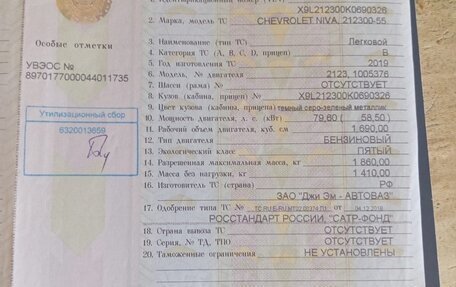 1. Идентификационный номер (VIN)
X9L212300K0690326
2. Марка, модель ТС CHEVROLET NIVA, 212300-55
Особые отметки
УВЭОС №
8970177000044011735
Утилизационный сбор
6320013659
3. Наименование (тип ТС) Легковой
4. Категория ТС (А, В, С, D, прицеп) В
5. Год изготовления ТС 2019
6. Модель, № двигателя 2123, 1005376
7. Шасси (рама) № ОТСУТСТВУЕТ
8. Кузов (кабина, прицеп) № X9L212300K0690326
9. Цвет кузова (кабины, прицепа) темный серо-зеленый металлик
10. Мощность двигателя, л. с. (кВт) 79,60 ( 58,50 )
11. Рабочий объем двигателя, куб. см 1 690,00
12. Тип двигателя БЕНЗИНОВЫЙ
13. Экологический класс ПЯТЫЙ
14. Разрешенная максимальная масса, кг 1 860,00
15. Масса без нагрузки, кг 1 410,00
16. Изготовитель ТС (страна) РФ
ЗАО "Джи Эм - АВТОВАЗ"
17. Одобрение типа ТС № от 04.12.2018
РОССТАНДАРТ РОССИИ, "САТР-ФОНД"
18. Страна вывоза ТС ОТСУТСТВУЕТ
19. Серия, № ТД, ТПО ОТСУТСТВУЕТ
20. Таможенные ограничения НЕ УСТАНОВЛЕНЫ